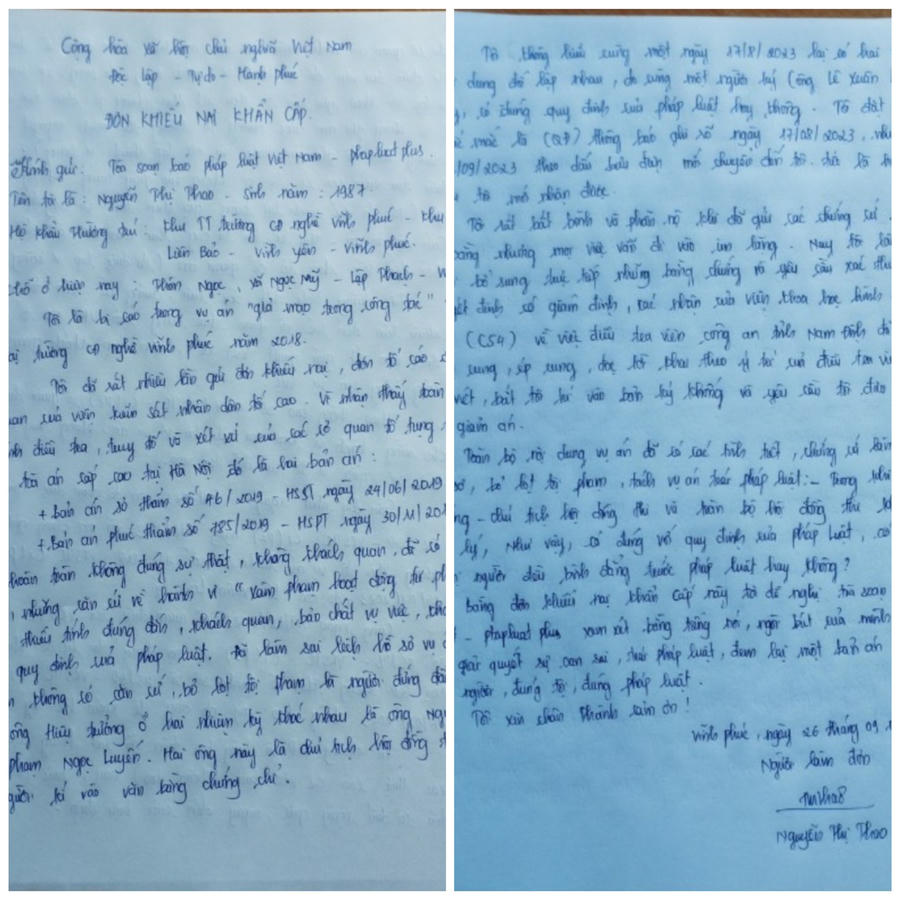 Cộng hòa xã hội chủ nghĩa Việt Nam
Độc lập - Tự do - Hạnh phúc
ĐƠN KHIẾU NẠI KHẨN CẤP.
Kính gửi: Tòa soạn báo pháp luật Việt Nam - phapluat plus.
Tên tôi là: Nguyễn Thị Thao - sinh năm: 1987
Hộ khẩu thường trú: Khu TT trường CĐ nghề Vĩnh Phúc - Khu
Liên Bảo - Vĩnh Yên - Vĩnh Phúc.
Chỗ ở hiện nay: Thôn Ngọc, xã Ngọc Mỹ - Lập Thạch - V
Tôi là bị cáo trong vụ án "giả mạo trong công tác"
tại trường CĐ nghề Vĩnh Phúc năm 2018.
Tôi đã rất nhiều lần gửi đơn khiếu nại, đơn tố cáo
quan của viện kiểm sát nhân dân tối cao. Vì nhận thấy toàn
điều tra, truy tố và xét xử của các cơ quan tố tụng
tòa án cấp cao tại Hà Nội đó là hai bản án:
+ Bản án sơ thẩm số 46/2019 - HSST ngày 24/06/2019
+ Bản án phúc thẩm số 785/2019 - HSPT ngày 30/11/201
hoàn toàn không đúng sự thật, không khách quan, đã có
những căn cứ về hành vi "xâm phạm hoạt động tư ph
thiếu tính đúng đắn, khách quan, bản chất vụ việc,
quy định của pháp luật. Đã làm sai lệch hồ sơ vụ
không có căn cứ, bỏ lọt tội phạm là người đứng đầ
ông Hiệu trưởng ở hai nhiệm kỳ khác nhau là ông Ng
Phạm Ngọc Luyến. Hai ông này là chủ tịch hội đồng
người kí vào văn bằng chứng chỉ.
Tôi không hiểu cùng một ngày 17/8/2023 lại có hai
dung đối lập nhau, do cùng một người ký (ông Lê Xuân
có đúng quy định của pháp luật hay không. Tôi đặt
mắc là (QĐ) thông báo ghi số ngày 17/08/2023
/09/2023 theo dấu bưu điện mới chuyển đến tôi. tức là
tôi mới nhận được.
Tôi rất bất bình và phẫn nộ khi đã gửi các chứng cứ
nhưng mọi việc vẫn đi vào im lặng. Nay tôi
bổ sung trực tiếp những bằng chứng và yêu cầu xác th
định có giám định, xác nhận của viện khoa học hình
(C54) về việc điều tra viên công an tỉnh Nam Định
cung, ép cung, đọc lời khai theo ý từ của điều tra vi
viết, bắt tôi ký vào bản ký khống và yêu cầu tôi
giảm án.
Toàn bộ nội dung vụ án đã có các tình tiết, chứng cứ
bỏ lọt tội phạm, tách vụ án trái pháp luật: - Trong
- chủ tịch hội đồng thi và toàn bộ hội đồng thi
lý, Như vậy, có đúng với quy định của pháp luật,
người đều bình đẳng trước pháp luật hay không?
Bằng đơn khiếu nại khẩn cấp này tôi đề nghị tòa soạn
- phapluat plus xem xét bằng tiếng nói, ngòi bút của mình
giải quyết sự oan sai, trái pháp luật, đem lại một bản án
người, đúng tội, đúng pháp luật.
Tôi xin chân thành cảm ơn!
Vĩnh Phúc, ngày 26 tháng 09
Người làm đơn
Nguyễn Thị Thao